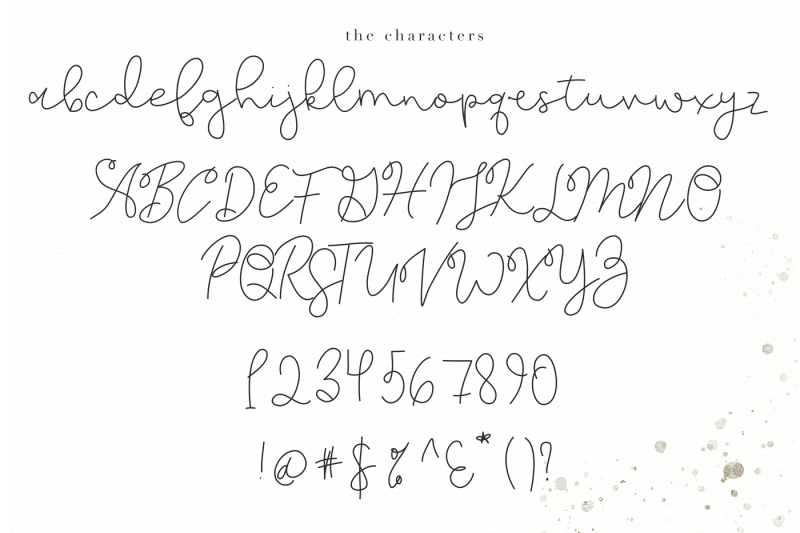 the characters
abcdefghijklmnopqrstuvwxyz
ABCDEFGHIJKLMNO
PQRSTUVWXYZ
1234567890
!@#$%^&*()?